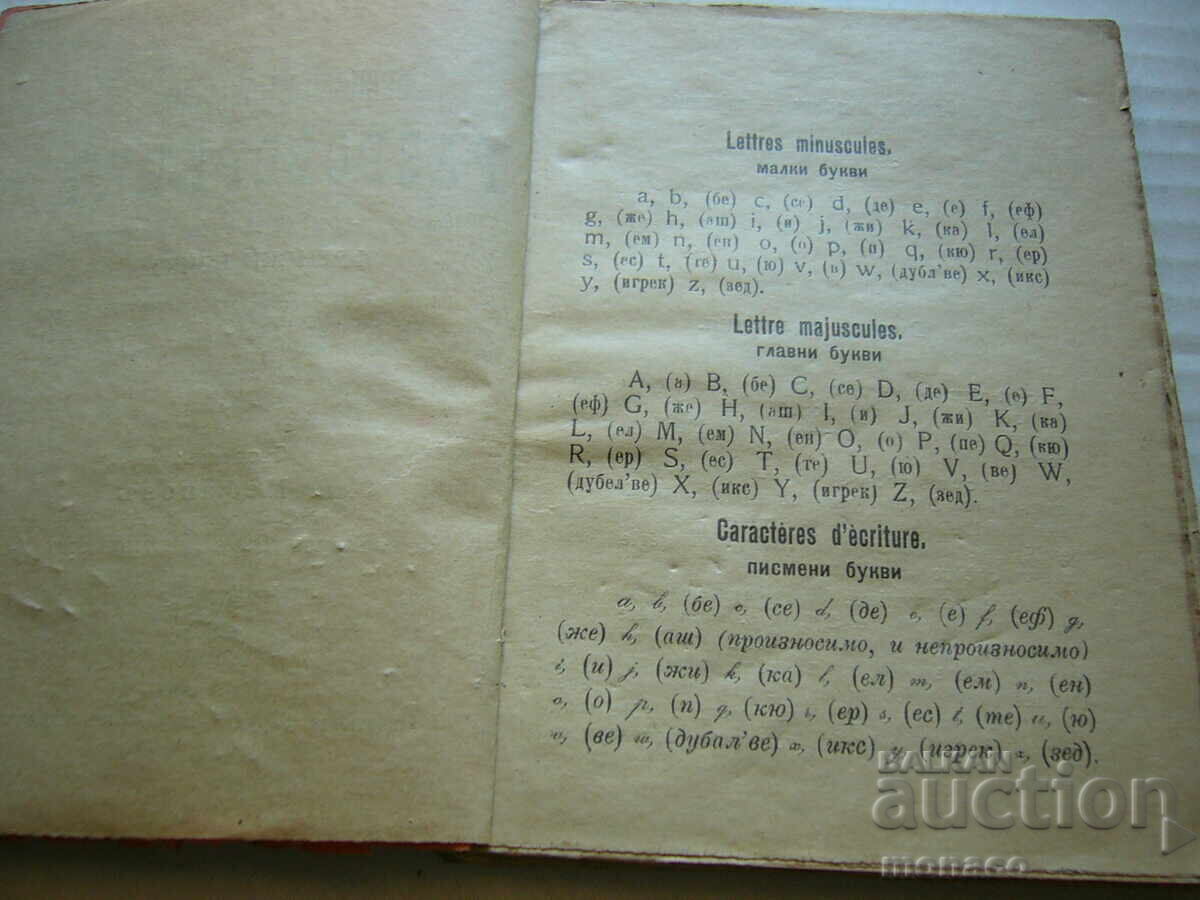 Lettres minuscules.
малки букви
a, b, (бе) c, (се) d, (де) e, (е) f, (еф)
g, (же) h, (аш) i, (и) j, (жи) k, (ка) l, (ел)
m, (ем) n, (ен) o, (о) p, (п) q, (кю) r, (ер)
s, (ес) t, (те) u, (ю) v, (в) w, (дубл'ве) x, (икс)
y, (игрек) z, (зед).
Lettre majuscules.
главни букви
A, (а) B, (бе) C, (се) D, (де) E, (е) F,
(еф) G, (же) H, (аш) I, (и) J, (жи) K, (ка)
L, (ел) M, (ем) N, (ен) O, (о) P, (пе) Q, (кю)
R, (ер) S, (ес) T, (те) U, (ю) V, (ве) W,
(дубел'ве) X, (икс) Y, (игрек) Z, (зед).
Caractères d'ècriture.
писмени букви
a, b, (бе) c, (се) d, (де) e, (е) f, (еф) g,
(же) h, (аш) (произносимо, и непроизносимо)
i, (и) j, (жи) k, (ка) l, (ел) m, (ем) n, (ен)
o, (о) p, (п) q, (кю) r, (ер) s, (ес) t, (те) u, (ю)
v, (ве) w, (дубал'ве) x, (икс) y, (игрек) z, (зед).
BALKAN
auction
monaco